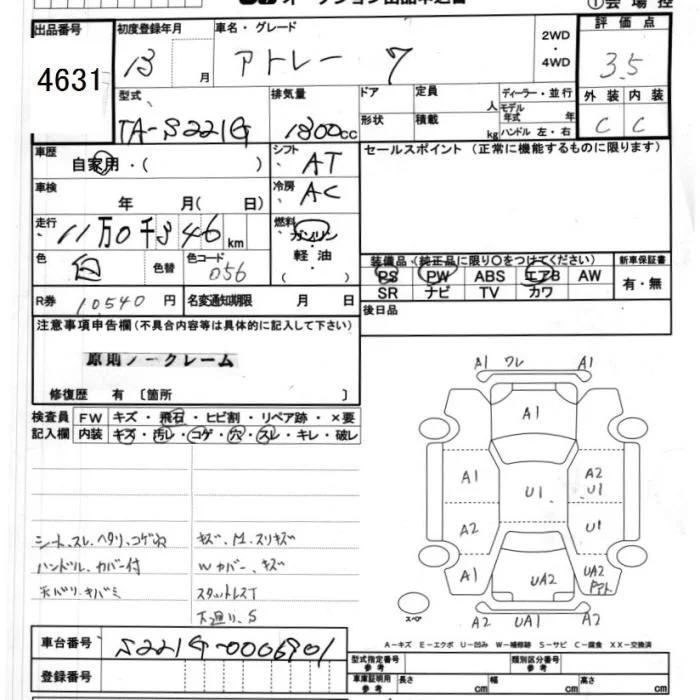 オークション出品申込書 ①会場控
出品番号 4631
初度登録年月 13 月
車名・グレード アトレー 7
2WD・4WD
評価点 3.5
型式 TA-S221G
排気量 1300cc
ドア 形状
定員 人
積載 kg
ディーラー・並行
モデル年式 年
ハンドル 左・右
外装 内装
C C
車歴 自家用・( )
シフト AT
セールスポイント(正常に機能するものに限ります)
車検 年 月( 日)
冷房 AC
走行 11万0千346 km
燃料 ガソリン・軽油・( )
色 白 色替 色コード 056
装備品(純正品に限り○をつけてください)
PS PW ABS エアB AW
SR ナビ TV カワ
新車保証書 有・無
R券 10540円 名変通知期限 月 日
後日品
注意事項申告欄(不具合内容等は具体的に記入して下さい)
原則ノークレーム
修復歴 有〔箇所 〕
検査員記入欄
FW キズ・飛石・ヒビ割・リペア跡・×要
内装 キズ・汚レ・コゲ・穴・スレ・キレ・破レ
シート、スレ、ヘタリ、コゲ穴
ハンドル、カバー付
天バリ、キバミ
キズ、M、スリキズ
Wカバー、キズ
スタットレスT
下廻リ、S
A1 ワレ A1
A1
A1 U1 A2 U1
A2 U1
A1 UA2 UA2 Pアト
スペア
A2 UA1 A2
A-キズ E-エクボ U-凹み W-補修跡 S-サビ C-腐食 XX-交換済
車台番号 S221G-0006901
登録番号
型式指定番号 参考
類別区分番号 参考
車庫証明用 参考 長さ cm 幅 cm 高さ cm